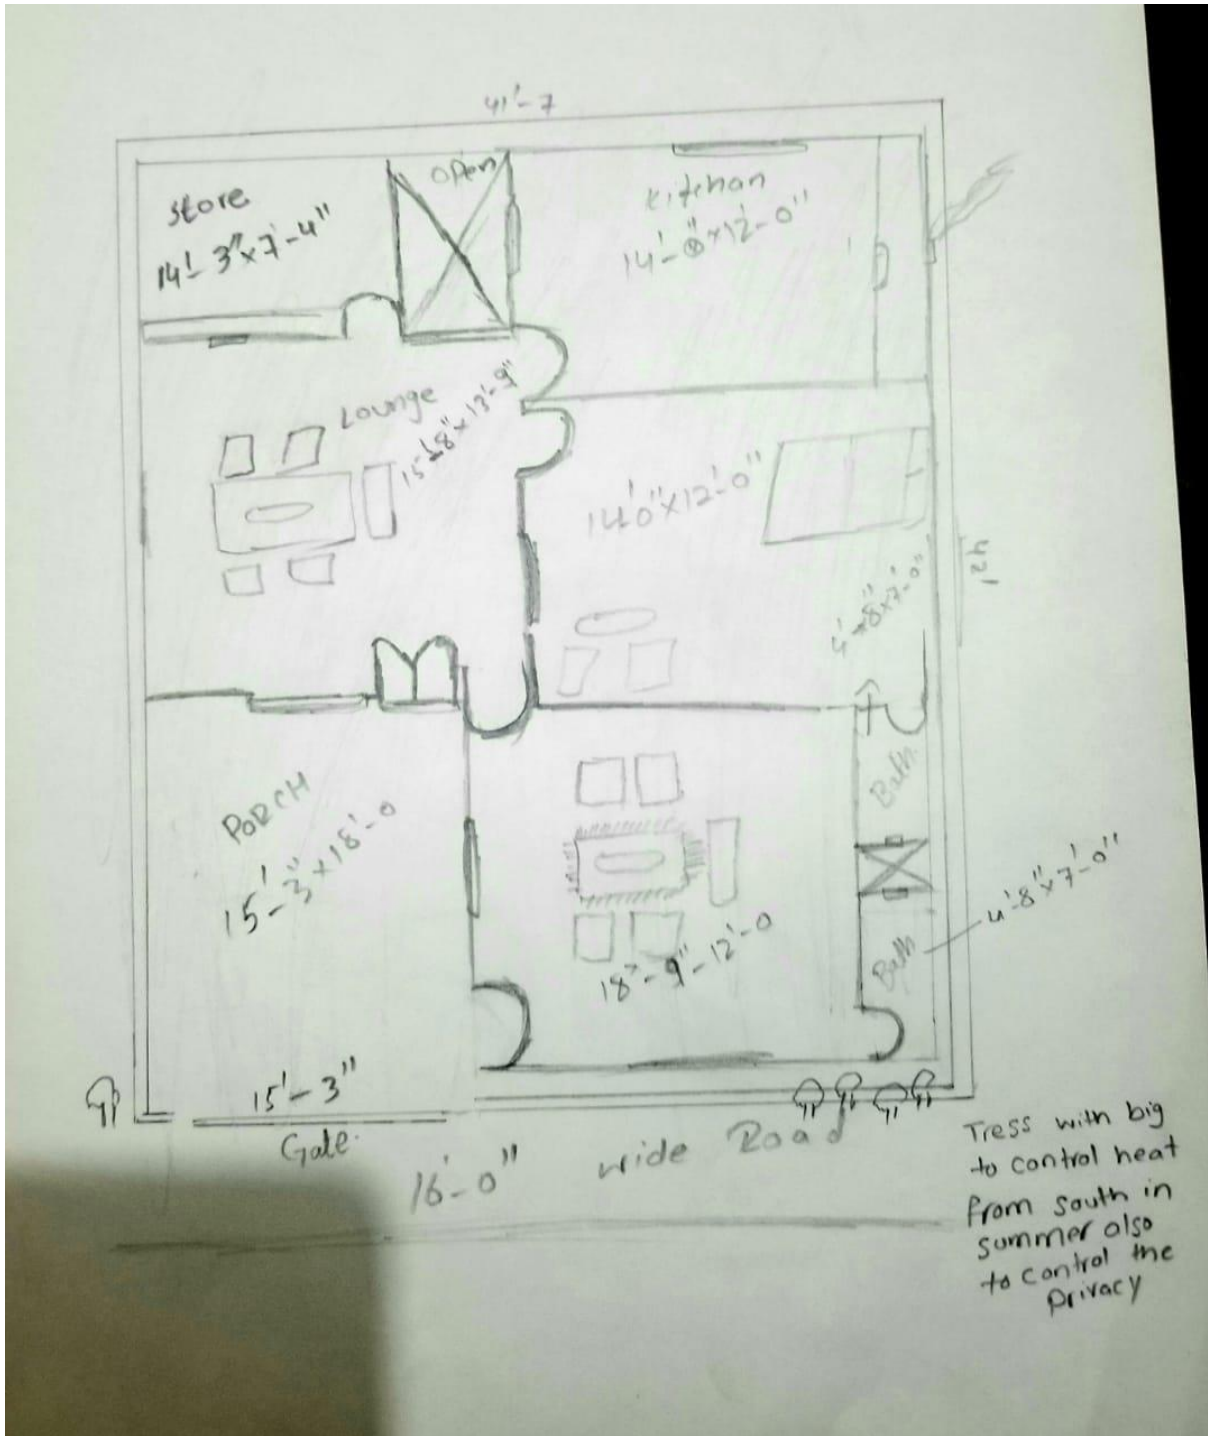 41'-7
store
14'-3"x7'-4"
open
kitchan
14'-0"x12'-0"
Lounge
15'-8"x13'-9"
14'0"x12'-0"
42'
4'-8"x7'-0"
PORCH
15'-3"x18'-0
Bath
18'-9"-12'-0
Bath
4'8"x7'-0"
15'-3"
Gate.
16'-0" wide Road
Tress with big
to control heat
from south in
summer also
to control the
privacy